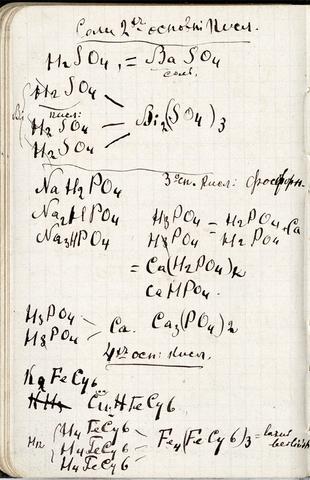 Соли 2х основн: кисл.
H2SO4, = BaSO4
соль.
H2SO4
Bi кисл: Bi2(SO4)3
H2SO4
H2SO4
3 осн. кисл: фосфорн.
NaH2PO4
Na2HPO4 H3PO4 = H2PO4 Ca
Na3HPO4 H3PO4 H2PO4
= Ca(H2PO4)2
CaHPO4.
H3PO4 Ca. Ca3(PO4)2
H3PO4
4х осн: кисл.
FeCy6
CuHFeCy6
H4FeCy6
H4FeCy6 Fe4(FeCy6)3 =
H4FeCy6